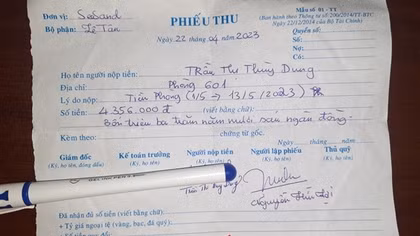 Đơn vị: Sasand
Bộ phận: Lễ Tân
PHIẾU THU
Ngày 22 tháng 04 năm 2023
Mẫu số 01 - TT
(Ban hành theo Thông tư số: 200/2014/TT-BTC
Ngày 22/12/2014 của Bộ Tài Chính)
Quyển số:
Số:
Nợ:
Có:
Họ tên người nộp tiền: TRần Thị Thùy Dung
Địa chỉ: Phòng 601
Lý do nộp: Tiền Phòng (1/5 → 13/5/2023)
Số tiền: 4 356.000 đ (viết bằng chữ):
Bốn triệu ba trăm năm mươi sau ngàn đồng.
Kèm theo: chứng từ gốc.
Ngày tháng năm
Giám đốc Kế toán trưởng Người nộp tiền Người lập phiếu Thủ quỹ
(Ký, họ tên, đóng dấu) (Ký, họ tên) (Ký, họ tên) (Ký, họ tên) (Ký, họ tên)
Trần Thị Thùy Dung
Nguyễn
Đã nhận đủ số tiền (viết bằng chữ):
+ Tỷ giá ngoại tệ (vàng, bạc, đá quý):